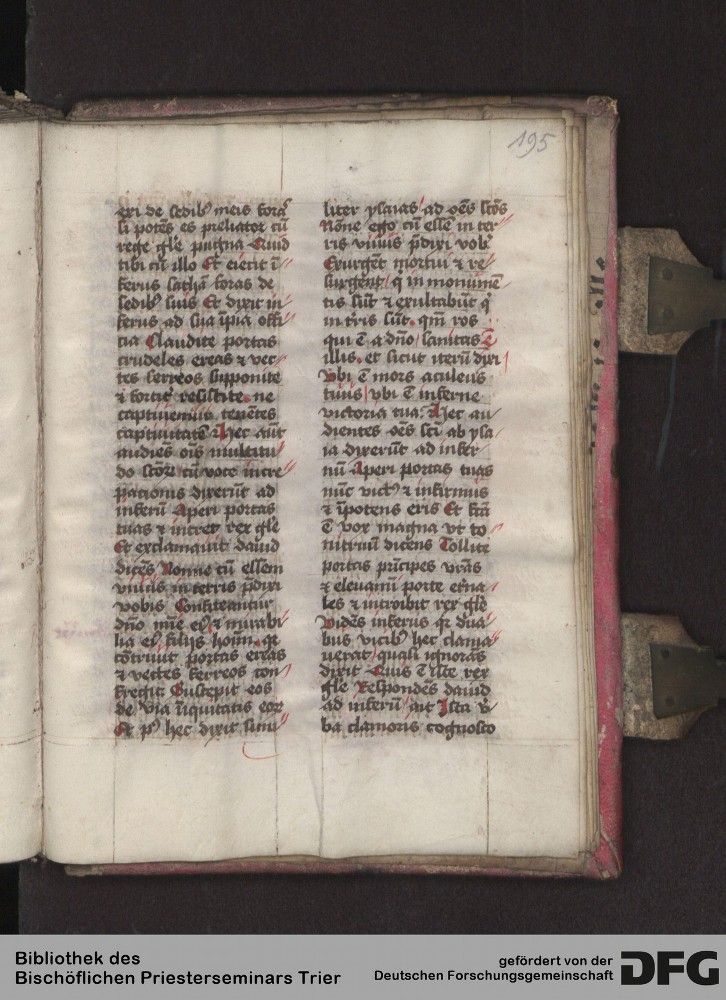 195
exi de sedib⁹ meis foras
si potēs es preliator cū
rege gl̄e pugna Quid
tibi cū illo Et eiecit ī
ferus sathā foras de
sedib⁹ suis Et dixit in
ferus ad sua īpia offi
cia Claudite portas
crudeles ereas ⁊ vec
tes ferreos supponite
⁊ fortit᷑ resistite ne
captiuemur tenētes
captiuitatē Hec aūt
audiēs oīs multitu
do sctōꝝ cū voce incre
pacionis dixerūt ad
inferū Aperi portas
tuas ⁊ intret rex gl̄e
Et exclamauit dauid
dicēs Nonne cū essem
viuus in terris p̄dixi
vobis Confiteantur
dn̄o mīe eī⁹ ⁊ mirabi
lia eī⁹ filijs hoīm qr
cōtriuit portas ereas
⁊ vectes ferreos con
fregit Suscepit eos
de via īiquitatis eoꝝ
Et p⁹ hec dixit simi
liter ysaias ad oēs sctōs
Nōne ego cū essē in ter
ris viuus p̄dixi vob⁹
Exurgēt mortui ⁊ re
surgent q̄ in monumē
tis sūt ⁊ exultabūt q̄
in tr̄is sūt qm̄ ros
qui ē a dn̄o sanitas ē
illis et sicut iterū dixi
Vbi ē mors aculeus
tuus vbi ē inferne
victoria tua Hec au
dientes oēs sctī ab ysa
ia dixerūt ad infer
nū Aperi portas tuas
nūc vict⁹ ⁊ infirmus
⁊ īpotens eris Et fctā
ē vox magna vt to
nitruū dicens Tollite
portas prīcipes vr̄as
⁊ eleuamī porte etn̄a
les ⁊ introibit rex gl̄e
Vidēs inferus qr dua
bus vicib⁹ hec clama
uerat quasi ignoras
dixit Quis ē iste rex
gl̄e Respondēs dauid
ad inferū ait Ista v̄
ba clamoris cognosco
Bibliothek des
Bischöflichen Priesterseminars Trier
gefördert von der
Deutschen Forschungsgemeinschaft
DFG